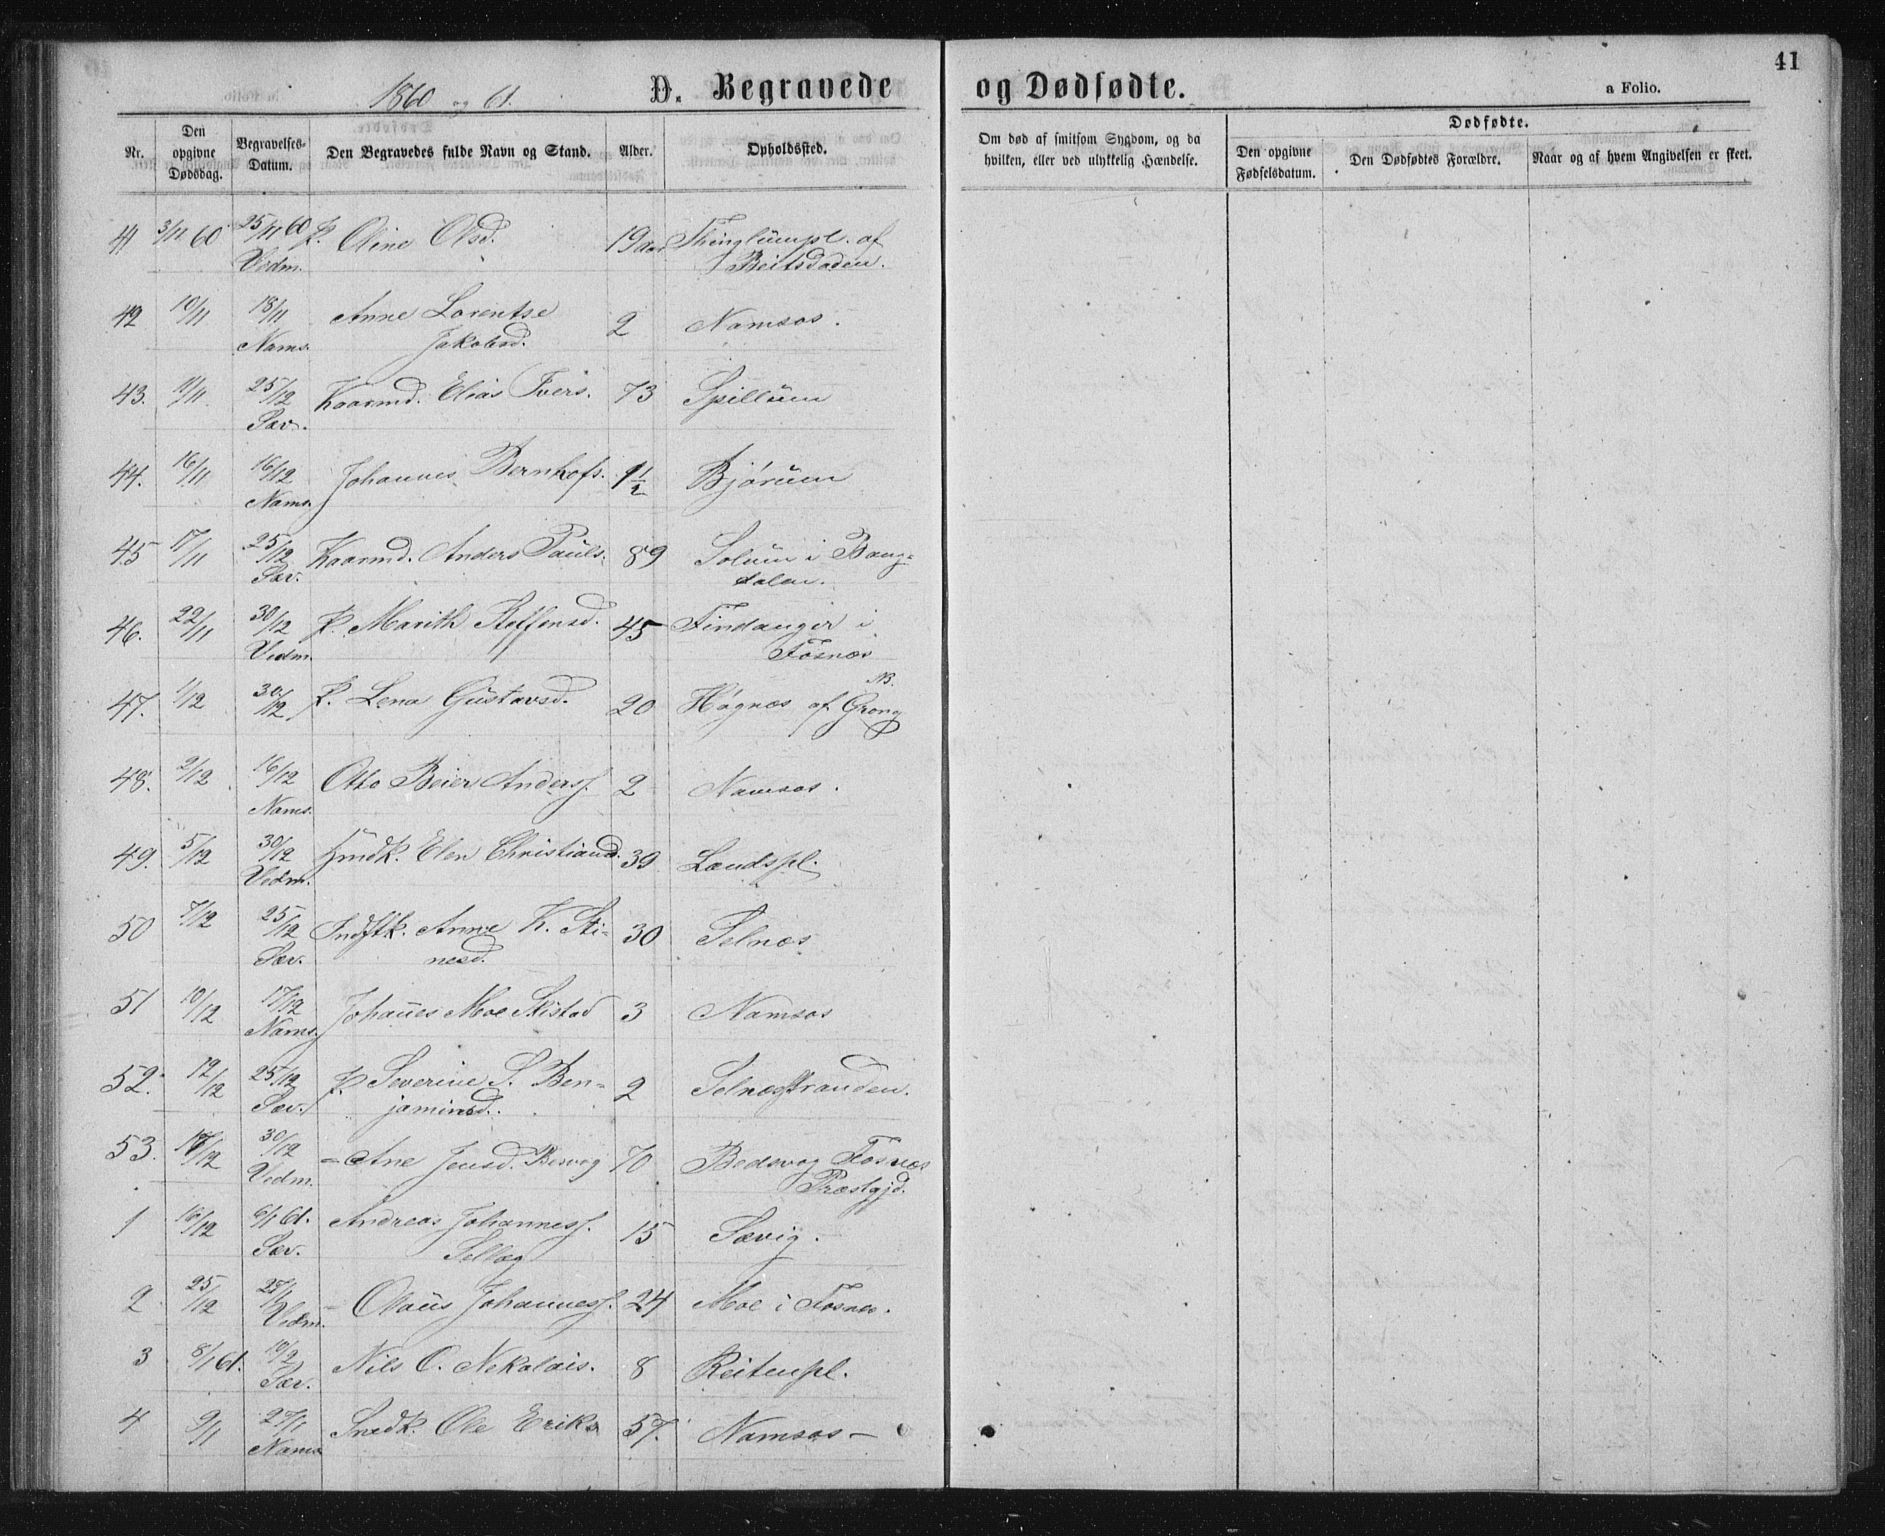 41
1860 og 61.
D. Begravede og Dødfødte.
a Folio.
Nr.
Den opgivne Dødsdag.
Begravelses-Datum.
Den Begravedes fulde Navn og Stand.
Alder.
Opholdssted.
Om død af smitsom Sygdom, og da hvilken, eller ved ulykkelig Hændelse.
Dødfødte.
Den opgivne Fødselsdatum.
Den Dødfødtes Forældre.
Naar og af hvem Angivelsen er skeet.
41 3/11 60 25/11 60 P. Oline Olsd. 19 aar af
Vedm.
42 10/11 18/11 Anne Lorentse 2 Namsos.
Nams. Jakobsd.
43. 11/11 25/12 Kaarmd. Elias Ivers. 73 Spillum
Sæv.
44. 16/11 16/12 Johannes Bernhofs. 1½ Bjørum
Nams.
45 17/11 25/12 Kaarmd. Anders Pauls. 89 Solum i Bang-
Sæv. dalen.
46. 22/11 30/12 P. Marith Steffensd. 45 Findanger i
Vedm. Fosnæs
NB.
47. 1/12 30/12 P. Lena Gustavsd. 20 Høgnæs af Grong
48. 2/12 16/12 Otto Beier Anders. 2 Namsos.
Nams.
49. 5/12 30/12 Hmdk. Elen Christiansd. 39 Landspl.
Vedm.
50 7/12 25/12 Indstk. Anne K. Sti- 30 Selnæs
Sæv. nesd.
51 10/12 17/12 Johañes Moe Skistad 3 Namsos
Nams.
52. 12/12 25/12 P. Severine S. Ben- 2 Selnæsstranden.
Sæv. jaminsd.
53. 17/12 30/12 - Ane Jensd. 70 Fosnæs
Vedm. Præstgjd.
1 16/12 6/1 61. Andreas Johanness. 15 Sævig.
Sæv.
2 25/12 27/1 - Olaus Johanness. 24 Moe i Fosnæs.
Vedm.
3 8/1 61. 10/2 Nils O. Nekolais. 8 Reitenpl.
Sæv.
4 9/1 27/1 Snedk. Ole Eriks 57. Namsos
Nams